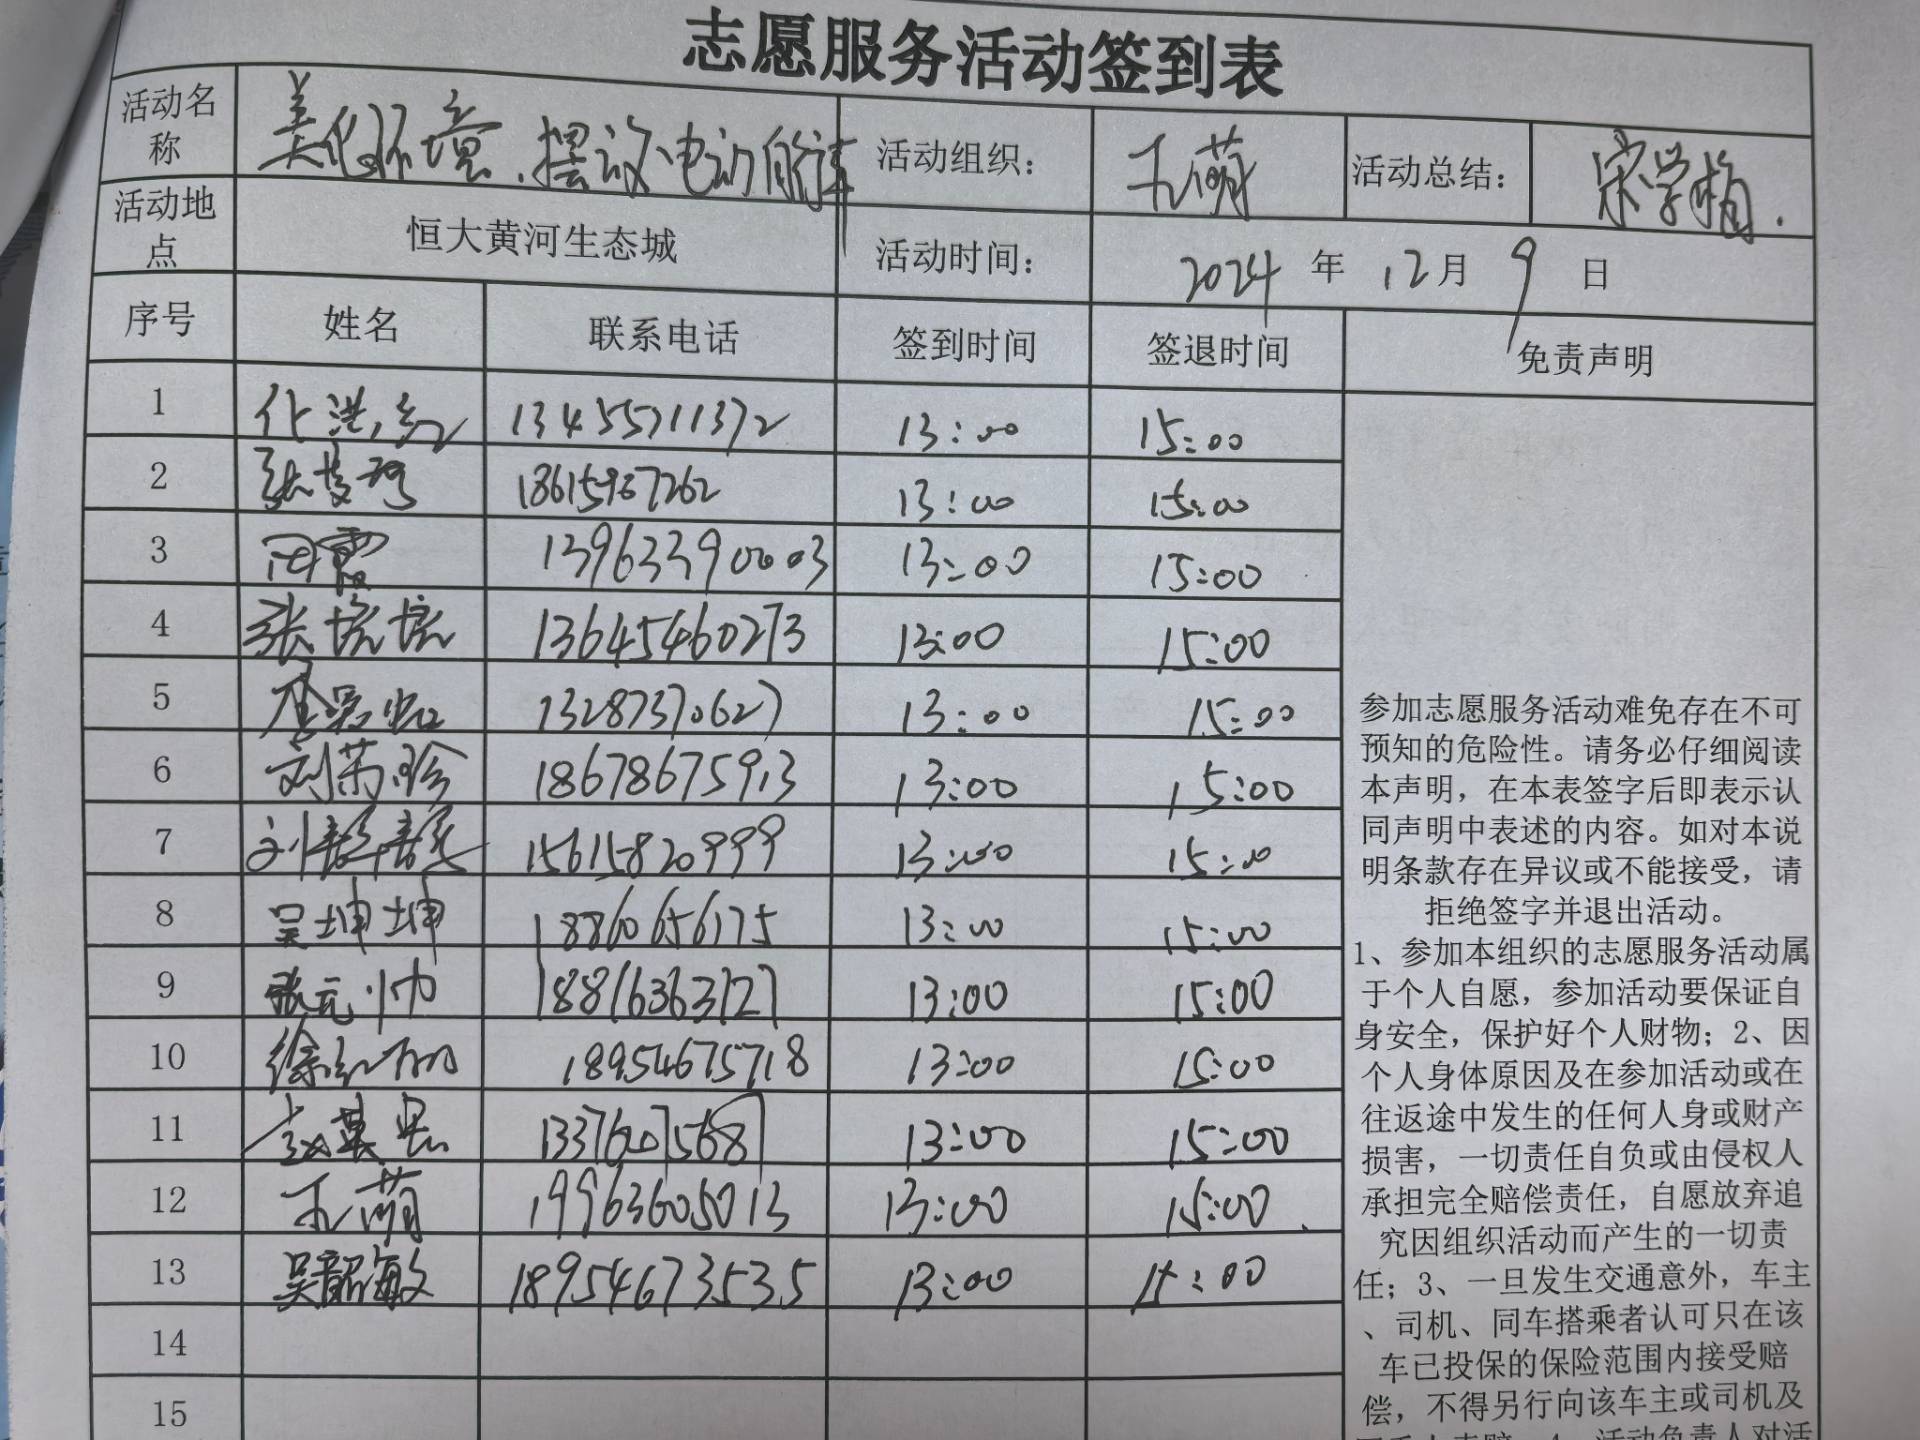 志愿服务活动签到表
活动名称 美化环境、摆放电动 活动组织： 王萌 活动总结： 宋学梅.
活动地点 恒大黄河生态城 活动时间： 2024 年 12 月 9 日
序号 姓名 联系电话 签到时间 签退时间 免责声明
1 13:00 15:00
2 18615987262 13:00 15:00
3 13963390003 13:00 15:00
4 张悦悦 13645460273 13:00 15:00
5 13287370627 13:00 15:00
6 刘荣珍 18678675913 13:00 15:00
7 15615820999 13:00 15:00
8 吴坤坤 18860656175 13:00 15:00
9 张元帅 18816363127 13:00 15:00
10 徐红丽 18954675718 13:00 15:00
11 赵英 13:00 15:00
12 王萌 19963605013 13:00 15:00
13 吴韶敏 18954673535 13:00 15:00
14
15
参加志愿服务活动难免存在不可
预知的危险性。请务必仔细阅读
本声明，在本表签字后即表示认
同声明中表述的内容。如对本说
明条款存在异议或不能接受，请
拒绝签字并退出活动。
1、参加本组织的志愿服务活动属
于个人自愿，参加活动要保证自
身安全，保护好个人财物；2、因
个人身体原因及在参加活动或在
往返途中发生的任何人身或财产
损害，一切责任自负或由侵权人
承担完全赔偿责任，自愿放弃追
究因组织活动而产生的一切责
任；3、一旦发生交通意外，车主
、司机、同车搭乘者认可只在该
车已投保的保险范围内接受赔
偿，不得另行向该车主或司机及